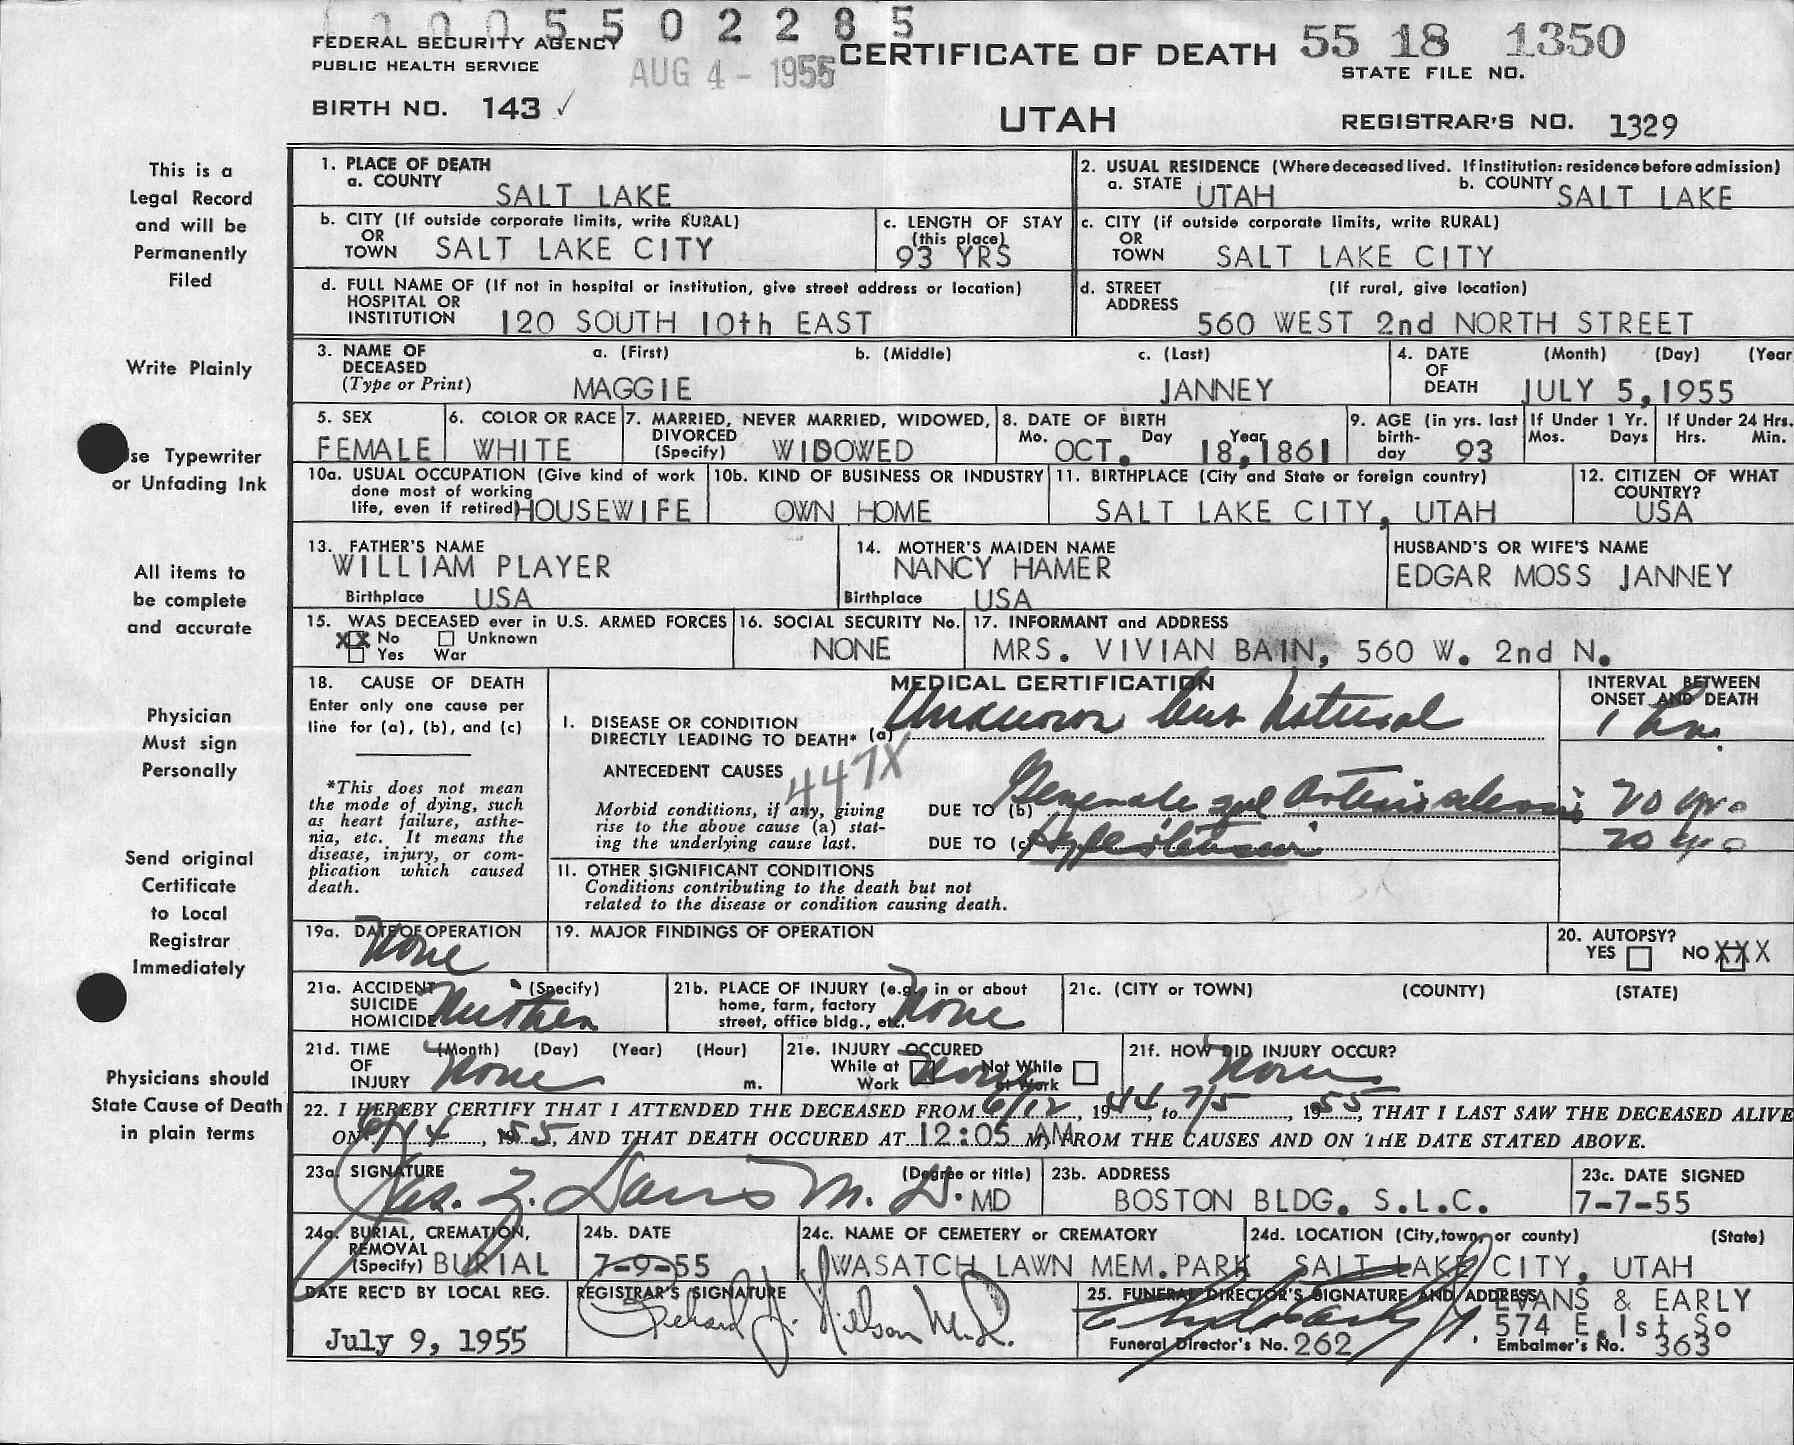 0005502285
FEDERAL SECURITY AGENCY
PUBLIC HEALTH SERVICE
AUG 4 - 1955
CERTIFICATE OF DEATH
55 18 1350
STATE FILE NO.
BIRTH NO. 143 ✓
UTAH
REGISTRAR'S NO. 1329
This is a
Legal Record
and will be
Permanently
Filed
Write Plainly
se Typewriter
or Unfading Ink
All items to
be complete
and accurate
Physician
Must sign
Personally
Send original
Certificate
to Local
Registrar
Immediately
Physicians should
State Cause of Death
in plain terms
1. PLACE OF DEATH
a. COUNTY SALT LAKE
2. USUAL RESIDENCE (Where deceased lived. If institution: residence before admission)
a. STATE UTAH b. COUNTY SALT LAKE
b. CITY (If outside corporate limits, write RURAL)
OR
TOWN SALT LAKE CITY
c. LENGTH OF STAY
(this place)
93 YRS
c. CITY (if outside corporate limits, write RURAL)
OR
TOWN SALT LAKE CITY
d. FULL NAME OF (If not in hospital or institution, give street address or location)
HOSPITAL OR
INSTITUTION 120 SOUTH 10th EAST
d. STREET (If rural, give location)
ADDRESS
560 WEST 2nd NORTH STREET
3. NAME OF a. (First) b. (Middle) c. (Last)
DECEASED
(Type or Print) MAGGIE JANNEY
4. DATE (Month) (Day) (Year
OF
DEATH JULY 5, 1955
5. SEX
FEMALE
6. COLOR OR RACE
WHITE
7. MARRIED, NEVER MARRIED, WIDOWED,
DIVORCED
(Specify) WIDOWED
8. DATE OF BIRTH
Mo. Day Year
OCT. 18, 1861
9. AGE (in yrs. last
birth-
day 93
If Under 1 Yr.
Mos. Days
If Under 24 Hrs.
Hrs. Min.
10a. USUAL OCCUPATION (Give kind of work
done most of working
life, even if retired) HOUSEWIFE
10b. KIND OF BUSINESS OR INDUSTRY
OWN HOME
11. BIRTHPLACE (City and State or foreign country)
SALT LAKE CITY, UTAH
12. CITIZEN OF WHAT
COUNTRY?
USA
13. FATHER'S NAME
WILLIAM PLAYER
Birthplace USA
14. MOTHER'S MAIDEN NAME
NANCY HAMER
Birthplace USA
HUSBAND'S OR WIFE'S NAME
EDGAR MOSS JANNEY
15. WAS DECEASED ever in U.S. ARMED FORCES
XX No Unknown
Yes War
16. SOCIAL SECURITY No.
NONE
17. INFORMANT and ADDRESS
MRS. VIVIAN BAIN, 560 W. 2nd N.
18. CAUSE OF DEATH
Enter only one cause per
line for (a), (b), and (c)
*This does not mean
the mode of dying, such
as heart failure, asthe-
nia, etc. It means the
disease, injury, or com-
plication which caused
death.
MEDICAL CERTIFICATION
INTERVAL BETWEEN
ONSET AND DEATH
I. DISEASE OR CONDITION
DIRECTLY LEADING TO DEATH* (a) Unknown but Natural 1 hr.
ANTECEDENT CAUSES 447X
Morbid conditions, if any, giving
rise to the above cause (a) stat-
ing the underlying cause last.
DUE TO (b) Arteriosclerosis 20 yrs
DUE TO (c) Hypertension 20 yrs
II. OTHER SIGNIFICANT CONDITIONS
Conditions contributing to the death but not
related to the disease or condition causing death.
19a. DATE OF OPERATION
None
19. MAJOR FINDINGS OF OPERATION
20. AUTOPSY?
YES NO XXX
21a. ACCIDENT (Specify)
SUICIDE
HOMICIDE Neither
21b. PLACE OF INJURY (e.g., in or about
home, farm, factory
street, office bldg., etc. None
21c. (CITY or TOWN) (COUNTY) (STATE)
21d. TIME (Month) (Day) (Year) (Hour)
OF
INJURY None m.
21e. INJURY OCCURED
While at Not While
Work None at Work
21f. HOW DID INJURY OCCUR?
None
22. I HEREBY CERTIFY THAT I ATTENDED THE DECEASED FROM 6/12, 1944, to 7/5, 1955, THAT I LAST SAW THE DECEASED ALIVE
ON 6/14, 1955, AND THAT DEATH OCCURED AT 12:05 M, AM FROM THE CAUSES AND ON THE DATE STATED ABOVE.
23a. SIGNATURE (Degree or title)
Jas. Z. Davis M. D. MD
23b. ADDRESS
BOSTON BLDG. S.L.C.
23c. DATE SIGNED
7-7-55
24a. BURIAL, CREMATION,
REMOVAL
(Specify) BURIAL
24b. DATE
7-9-55
24c. NAME OF CEMETERY or CREMATORY
WASATCH LAWN MEM. PARK
24d. LOCATION (City, town, or county) (State)
SALT LAKE CITY, UTAH
DATE REC'D BY LOCAL REG.
July 9, 1955
REGISTRAR'S SIGNATURE
Richard J. Nilson M.D.
25. FUNERAL DIRECTOR'S SIGNATURE AND ADDRESS
EVANS & EARLY
574 E. 1st So
Funeral Director's No. 262
Embalmer's No. 363